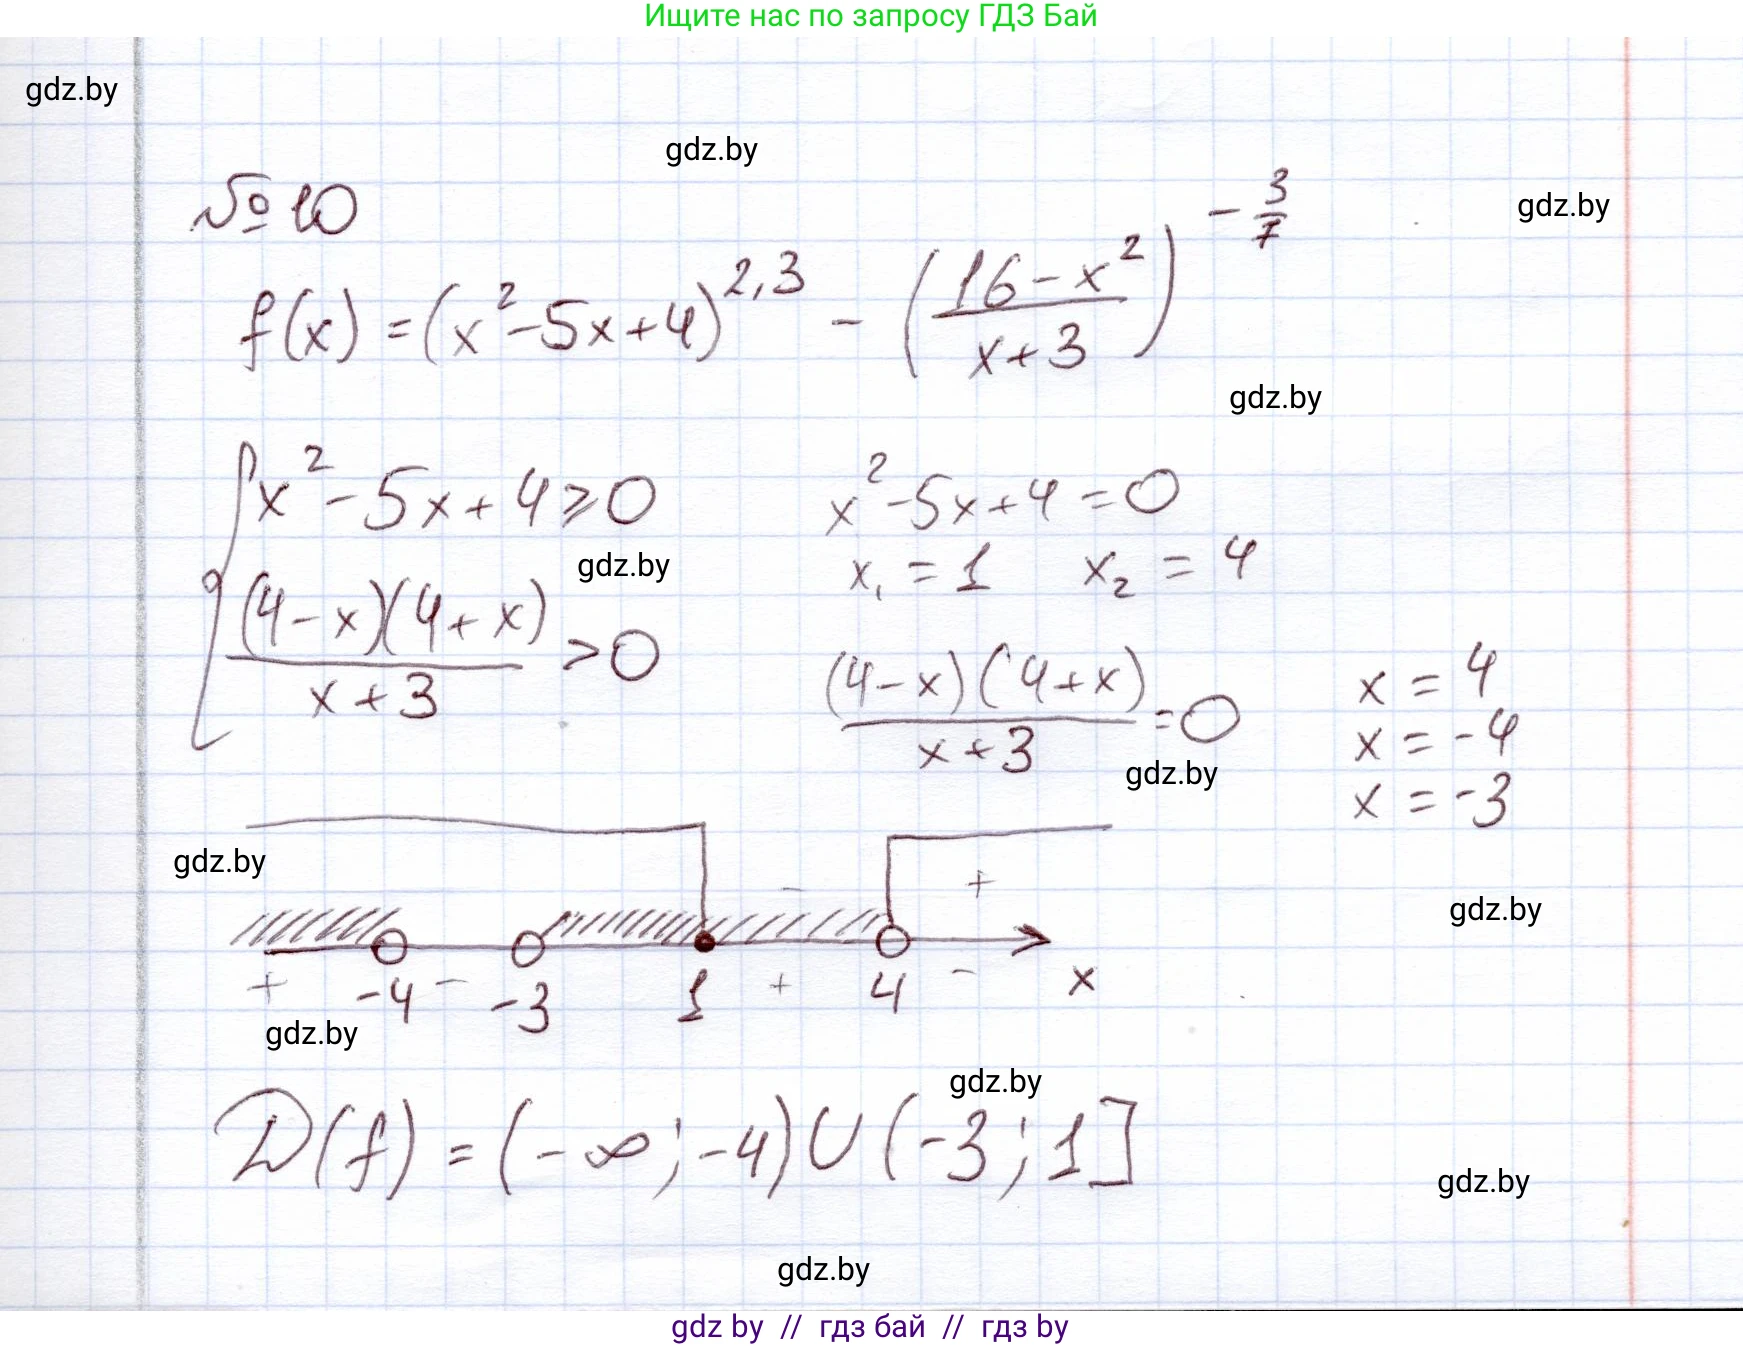 Ищите нас по запросу ГДЗ Бай
gdz.by
gdz.by
№ 10
gdz.by
f(x) = (x² - 5x + 4)^2,3 - ((16 - x²)/(x + 3))^(-3/7)
gdz.by
{ x² - 5x + 4 ⩾ 0
x² - 5x + 4 = 0
gdz.by
x₁ = 1 x₂ = 4
(4 - x)(4 + x)/(x + 3) > 0
(4 - x)(4 + x)/(x + 3) = 0
x = 4
x = -4
x = -3
gdz.by
gdz.by
- +
gdz.by
+ -4 - -3 1 + 4 - x
gdz.by
gdz.by
D(f) = (-∞; -4) ∪ (-3; 1]
gdz.by
gdz.by
gdz by // гдз бай // гдз by